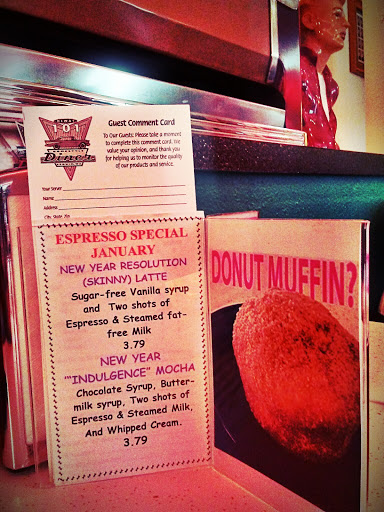 101
Diner
Guest Comment Card
To Our Guests: Please take a moment
to complete this comment card. We
value your opinion, and thank you
for helping us to monitor the quality
of our products and service.
Your Server:
Name:
Address:
City, State, Zip
ESPRESSO SPECIAL
JANUARY
NEW YEAR RESOLUTION
(SKINNY) LATTE
Sugar-free Vanilla syrup
and Two shots of
Espresso & Steamed fat-
free Milk
3.79
NEW YEAR
""INDULGENCE" MOCHA
Chocolate Syrup, Butter-
milk syrup, Two shots of
Espresso & Steamed Milk,
And Whipped Cream.
3.79
DONUT MUFFIN?